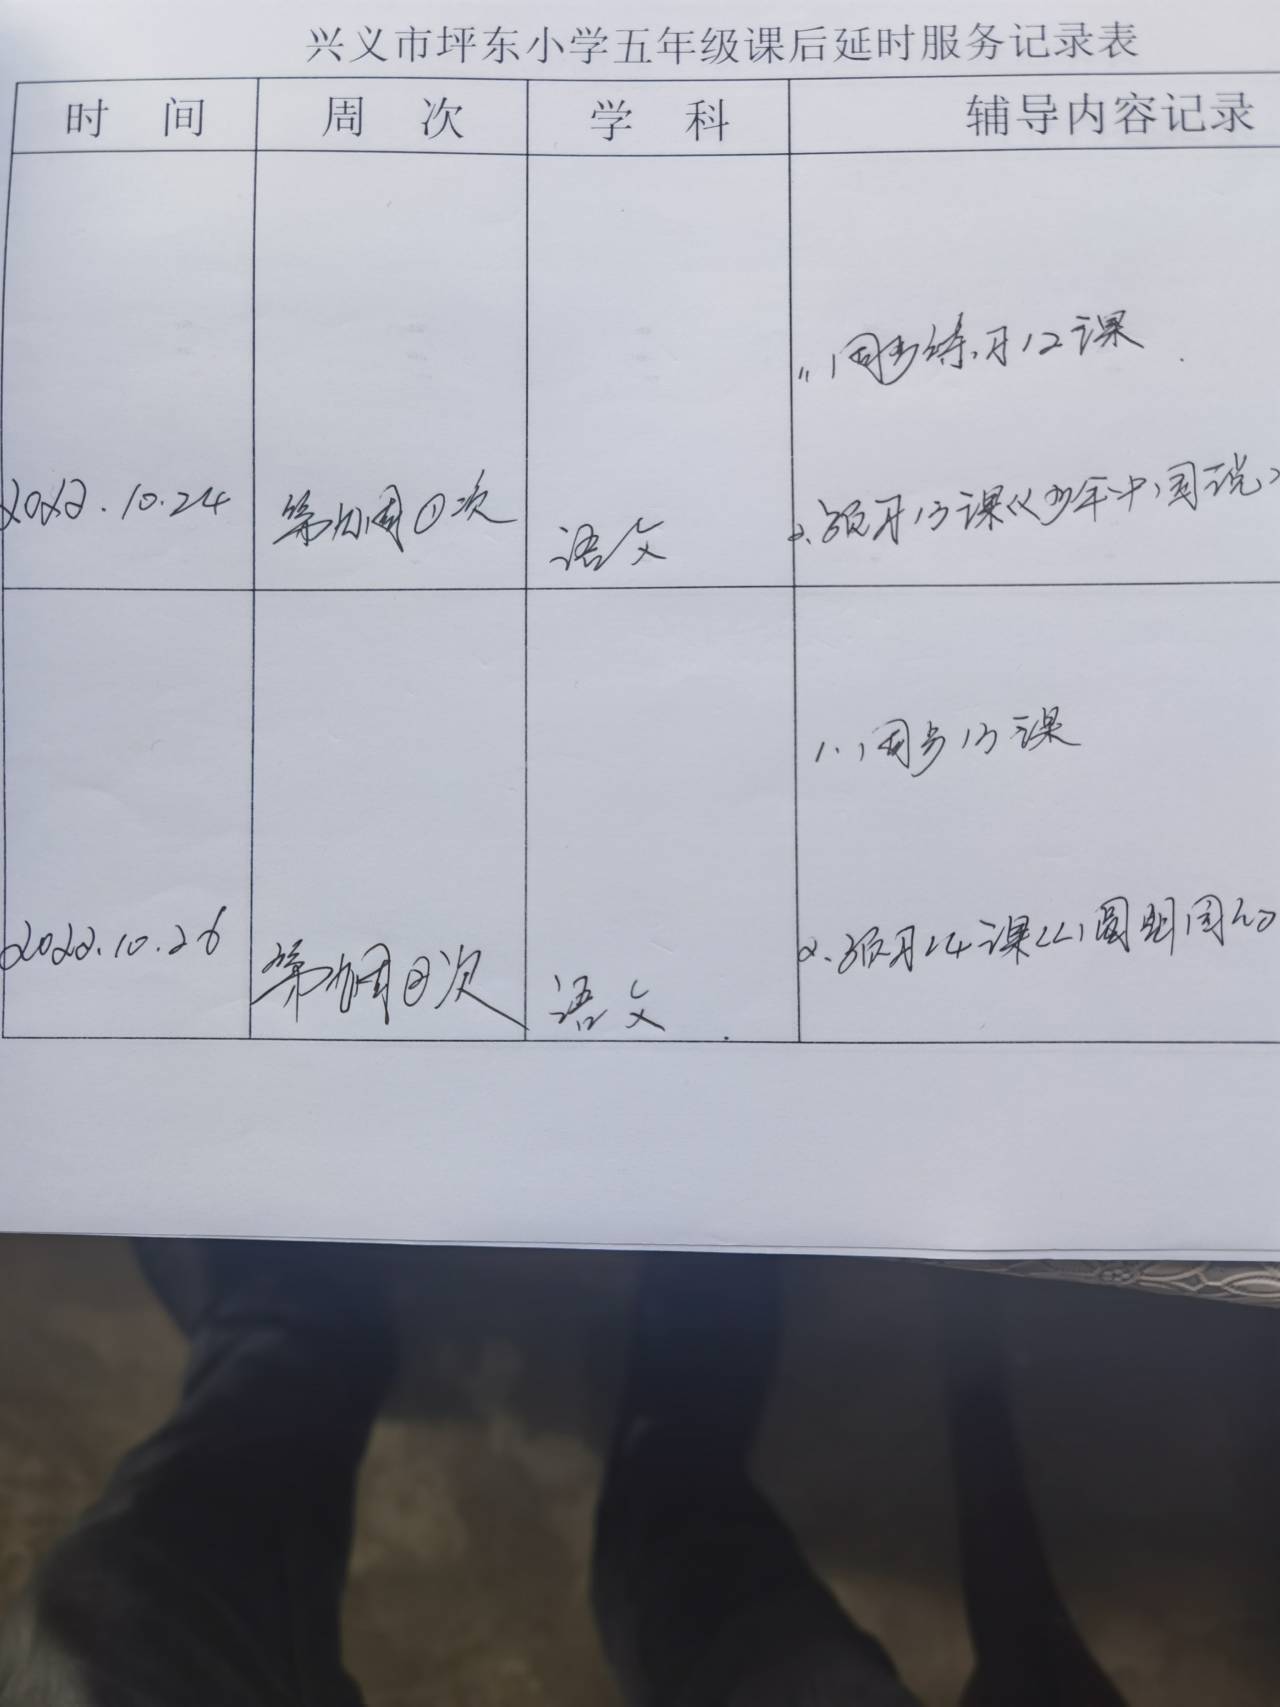 兴义市坪东小学五年级课后延时服务记录表
时 间 周 次 学 科 辅导内容记录
1. 同步练习12课
2022.10.24 第九周①次 语文 2.预习13课《少年中国说》
1. 同步13课
2022.10.26 第九周②次 语文 2.预习14课《圆明园的